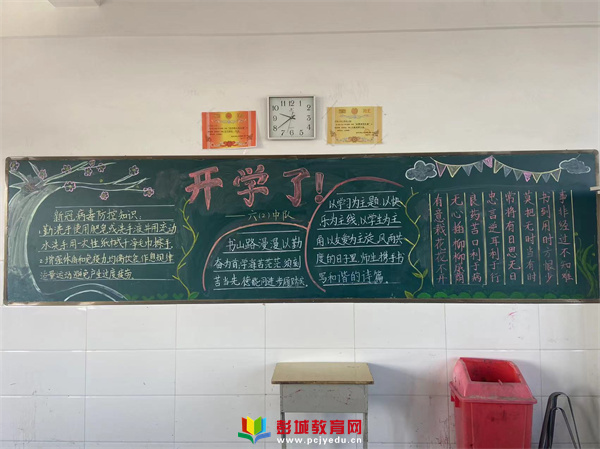 开学了!
——六(2)中队
新冠病毒防控知识
1.勤洗手使用肥皂或洗手液并用流动
水洗手用一次性纸或干净毛巾擦手
2.增强体质和免疫力均衡饮食作息规律
适量运动避免产生过度疲劳
书山路漫漫以勤
奋为首,学海苦茫茫
苦当先
以学习为主题,以快
乐为主线,以学生为主
角以友爱为主旋,风雨共
度的日子里,师生携手书
写和谐的诗篇。
事非经过不知难
书到用时方恨少
莫把无时当有时
常将有日思无日
忠言逆耳利于行
良药苦口利于病
无心插柳柳成荫
有意栽花花不开
彭城教育网
www.pcjyedu.cn